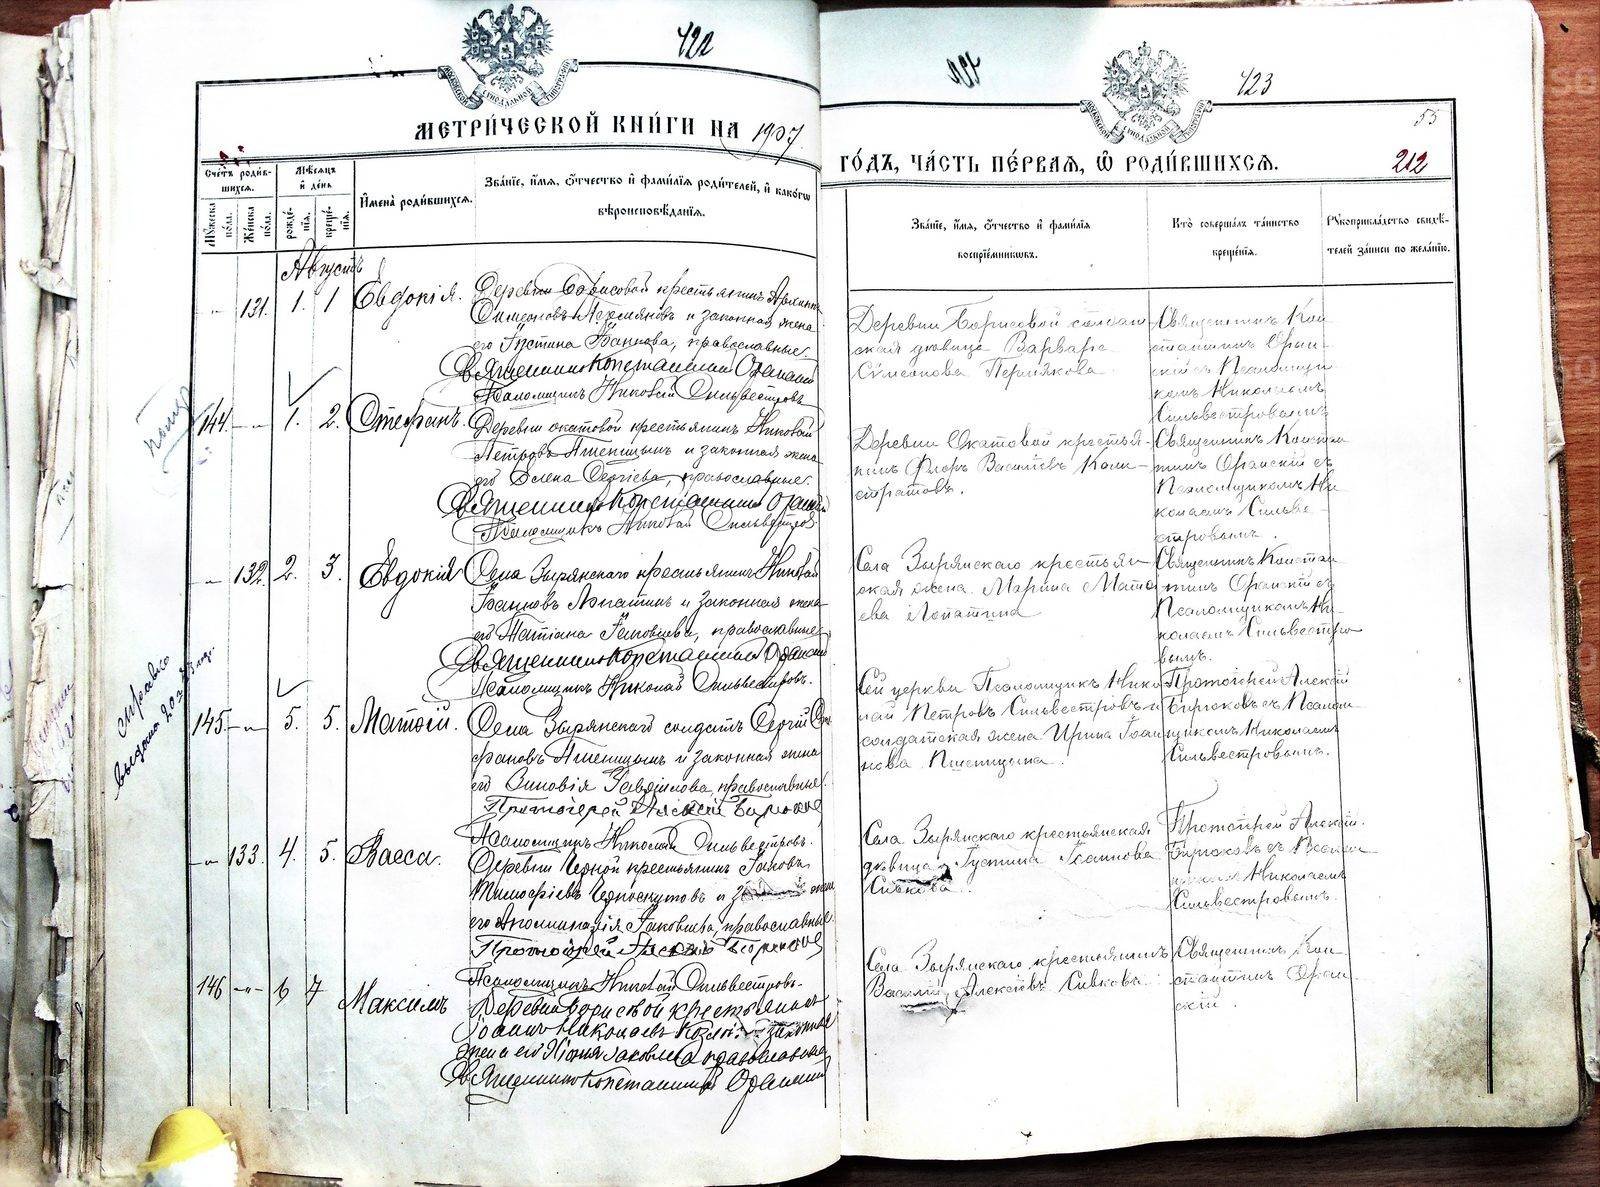 422
МОСКОВСКОЙ СѴНОДАЛЬНОЙ ТИПОГРАФІИ
МЕТРИ́ЧЕСКОЙ КНИ́ГИ НА 1907
Сче́тъ роди́в-
шихсѧ.
Мꙋ́жеска по́ла.
Же́нска по́ла.
Мѣ́сѧцъ
и҆ де́нь
рожде́-
нїѧ.
креще́-
нїѧ.
И҆мена̀ роди́вшихсѧ.
Зва́нїе, и҆́мѧ, ѻ҆́тчество и҆ фами́лїѧ роди́телей, и҆ како́гѡ
вѣроисповѣ́данїѧ.
Августъ
131. 1. 1 Евдокія.
Деревни Борисовой крестьянинъ
Симеоновъ Пермяковъ и законная жена
его Іустина Іоаннова, православные.
Священникъ Константинъ Оранскій
Псаломщикъ Николай Сильвестровъ
144. 1. 2. Стефанъ.
Деревни Окатовой крестьянинъ Николай
Петровъ Пшеницынъ и законная жена
его Елена Сергіева, православные.
Священникъ Константинъ Оранскій
Псаломщикъ Николай Сильвестровъ
132. 2. 3. Евдокія
Села Зырянскаго крестьянинъ Николай
Іоанновъ Лопатинъ и законная жена
его Татіана Іаковлева, православные.
Священникъ Константинъ Оранскій
Псаломщикъ Николай Сильвестровъ.
справка
выдана
145. 5. 5. Матѳій.
Села Зырянскаго солдатъ Сергій Сте-
фановъ Пшеницынъ и законная жена
его Зиновія Гавріилова, православные.
Протоіерей Алексій Бирюковъ
Псаломщикъ Николай Сильвестровъ.
133. 4. 5. Васса.
Деревни Черной крестьянинъ Іаковъ
Тимофіевъ Черноскутовъ и жена
его Аполлинарія Іаковлева, православные.
Протоіерей Алексій Бирюковъ
Псаломщикъ Николай Сильвестровъ.
146 6 7 Максимъ
Деревни Борисовой крестьянинъ
Іоаннъ Николаевъ законная
жена его Ксенія Іаковлева православные
Священникъ Константинъ Оранскій
423
55
212
МОСКОВСКОЙ СѴНОДАЛЬНОЙ ТИПОГРАФІИ
ГО́ДЪ, ЧА́СТЬ ПЕ́РВАѦ, Ѡ҆ РОДИ́ВШИХСѦ.
Зва́нїе, и҆́мѧ, ѻ҆́тчество и҆ фами́лїѧ
воспрїе́мниковъ.
Кто̀ соверша́лъ та́инство
креще́нїѧ.
Рꙋкоприкла́дство свидѣ́-
телей за́писи по жела́нїю.
Деревни Борисовой солдат-
ская дѣвица Варвара
Симеонова Пермякова.
Священникъ Кон-
стантинъ Оран-
скій съ Псаломщи-
комъ Николаемъ
Сильвестровымъ
Деревни Окатовой крестья-
нинъ Флоръ Василіевъ Кали-
стратовъ.
Священникъ Констан-
тинъ Оранскій съ
Псаломщикомъ Ни-
колаемъ Сильве-
стровымъ.
Села Зырянскаго крестьян-
ская жена Марина Матѳ-
ева Лопатина
Священникъ Констан-
тинъ Оранскій съ
Псаломщикомъ Ни-
колаемъ Сильвестро-
вымъ.
Сей церкви Псаломщикъ Нико-
лай Петровъ Сильвестровъ и
солдатская жена Ирина Іоан-
нова Пшеницына.
Протоіерей Алексій
Бирюковъ съ Псалом-
щикомъ Николаемъ
Сильвестровымъ.
Села Зырянскаго крестьянская
дѣвица Іустина Іоаннова
Сивкова.
Протоіерей Алексій
Бирюковъ съ Псалом-
щикомъ Николаемъ
Сильвестровымъ.
Села Зырянскаго крестьянинъ
Василій Алексіевъ Сивковъ.
Священникъ Кон-
стантинъ Оран-
скій.